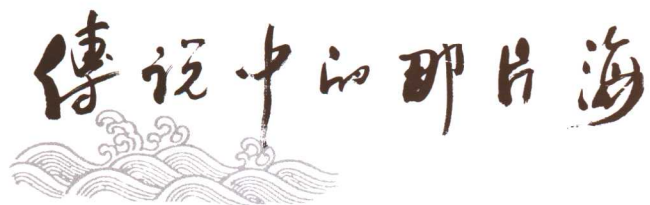 傳说中的那片海